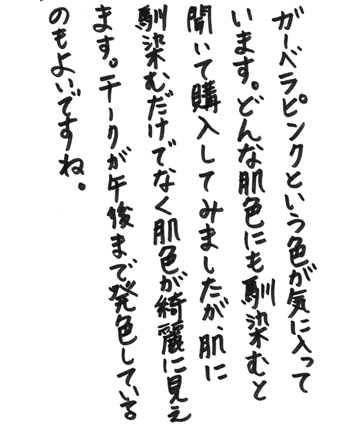 ガーベラピンクという色が気に入って
います。どんな肌色にも馴染むと
聞いて購入してみましたが、肌に
馴染むだけでなく肌色が綺麗に見え
ます。チークが午後まで発色している
のもよいですね。